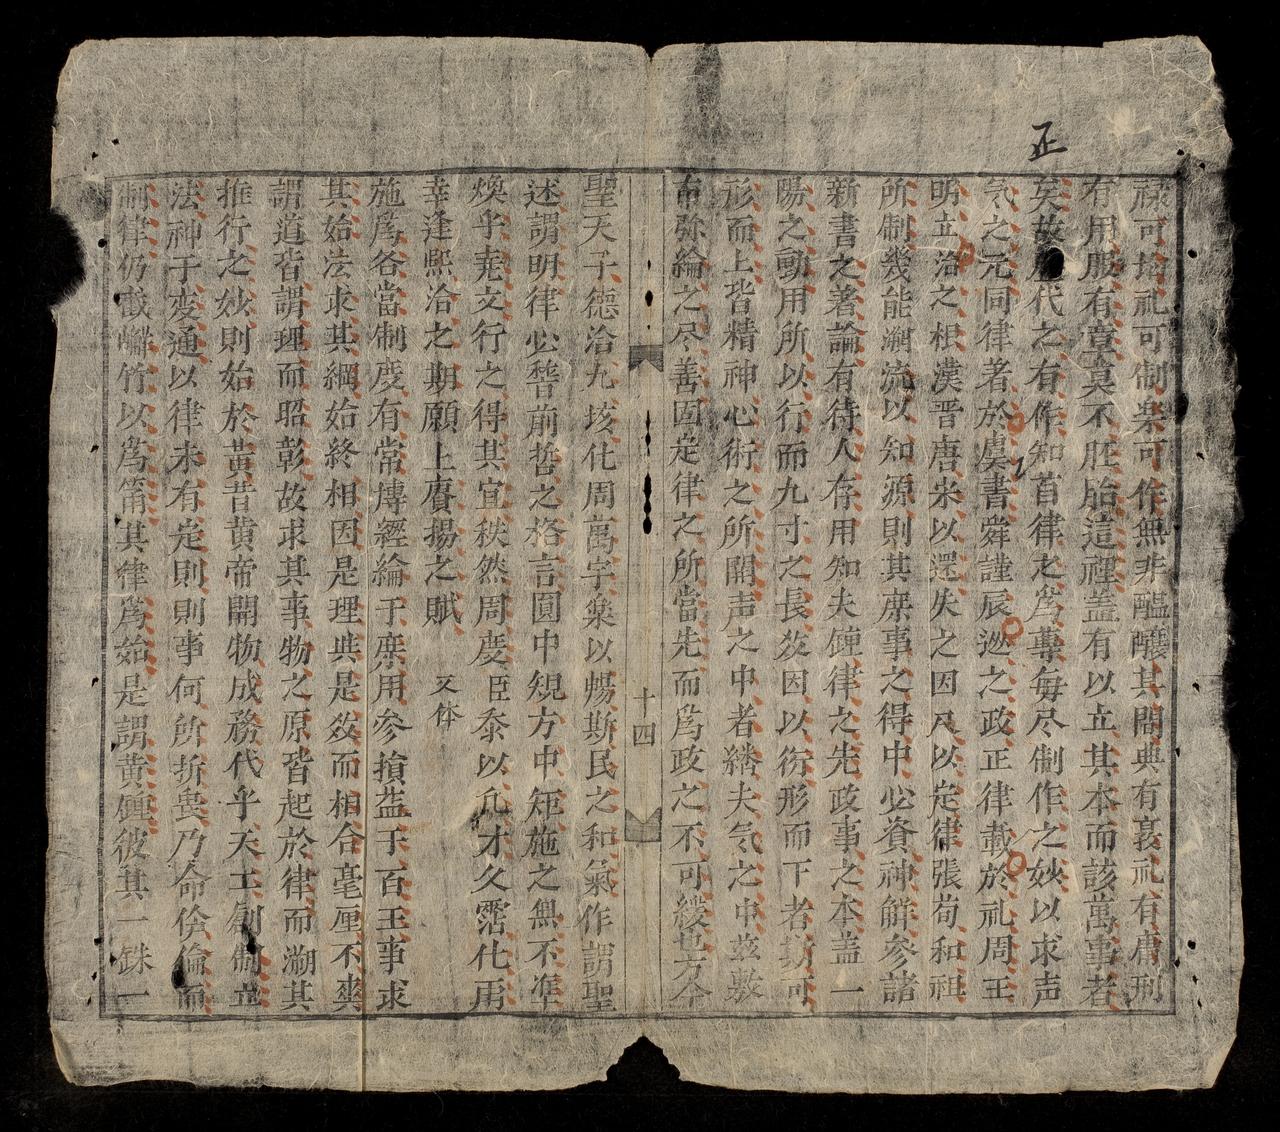 正
祿可培礼可制楽可作無非醖釀其間典有裒礼有庸刑
有用服有章莫不胚胎這裡盖有以立其本而該萬事者
矣故歷代之有作知首律之爲尊每尽制作之妙以求声
気之元同律著於虞書舜謹辰巡之政正律載於礼周王
明立治之根漢晋唐来以還失之因尺以定律張荀和祖
所制幾能溯流以知源則其庶事之得中必資神解参諸
新書之著論有待人存用知夫鍾律之先政事之本盖一
陽之動用所以行而九寸之長效因以衍形而下者功可
形而上皆精神心術之所關声之中者繙夫気之中兹敷
弥綸之尽善固定律之所當先而爲政之不可緩也方今
十四
聖天子德洽九垓化周萬宇楽以暢斯民之和氣作謂聖
述謂明律必督前哲之格言圓中規方中矩施之無不准
煥乎尭文行之得其宜秩然周度臣忝以凡才久霑化雨
幸逢熙洽之期願上賡揚之賦 又体
施爲各當制度有常慱經綸于庶用参損益于百王事求
其始法求其綱始終相因是理與是效而相合毫厘不爽
謂道皆謂理而昭彰故求其事物之原皆起於律而溯其
推行之妙則始於黃昔黄帝開物成務代乎天工創制立
法神于变通以律未有定則則事何所折𠂇乃命伶倫而
制律仍截嶰竹以爲筩其律爲始是謂黄鍾彼其一銖一